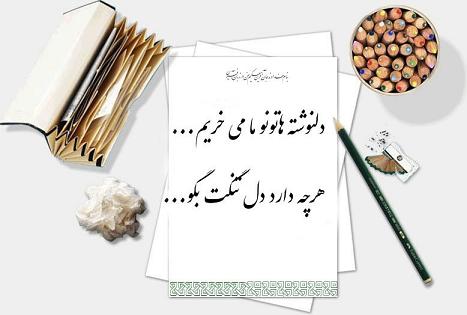 دلنوشته هاتونو ما می خریم...
هرچه دارد دل تنگت بگو...